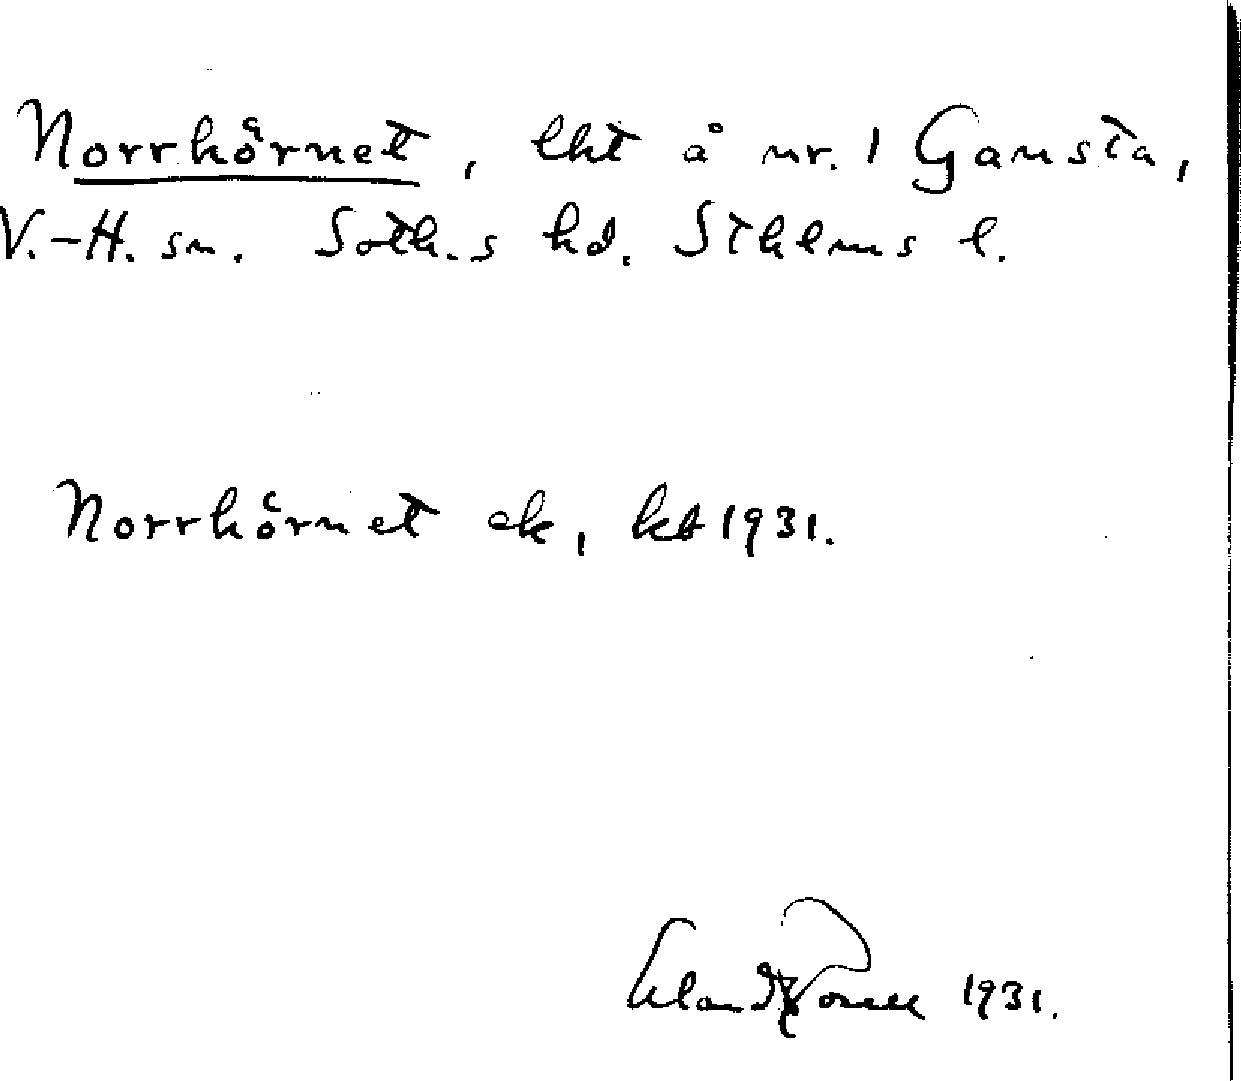 Norrhörnet, lht å nr. 1 Gansta,
V.-H. sn. Soth.s hd. Sthlms l.
Norrhörnet ek, kb 1931.
1931.